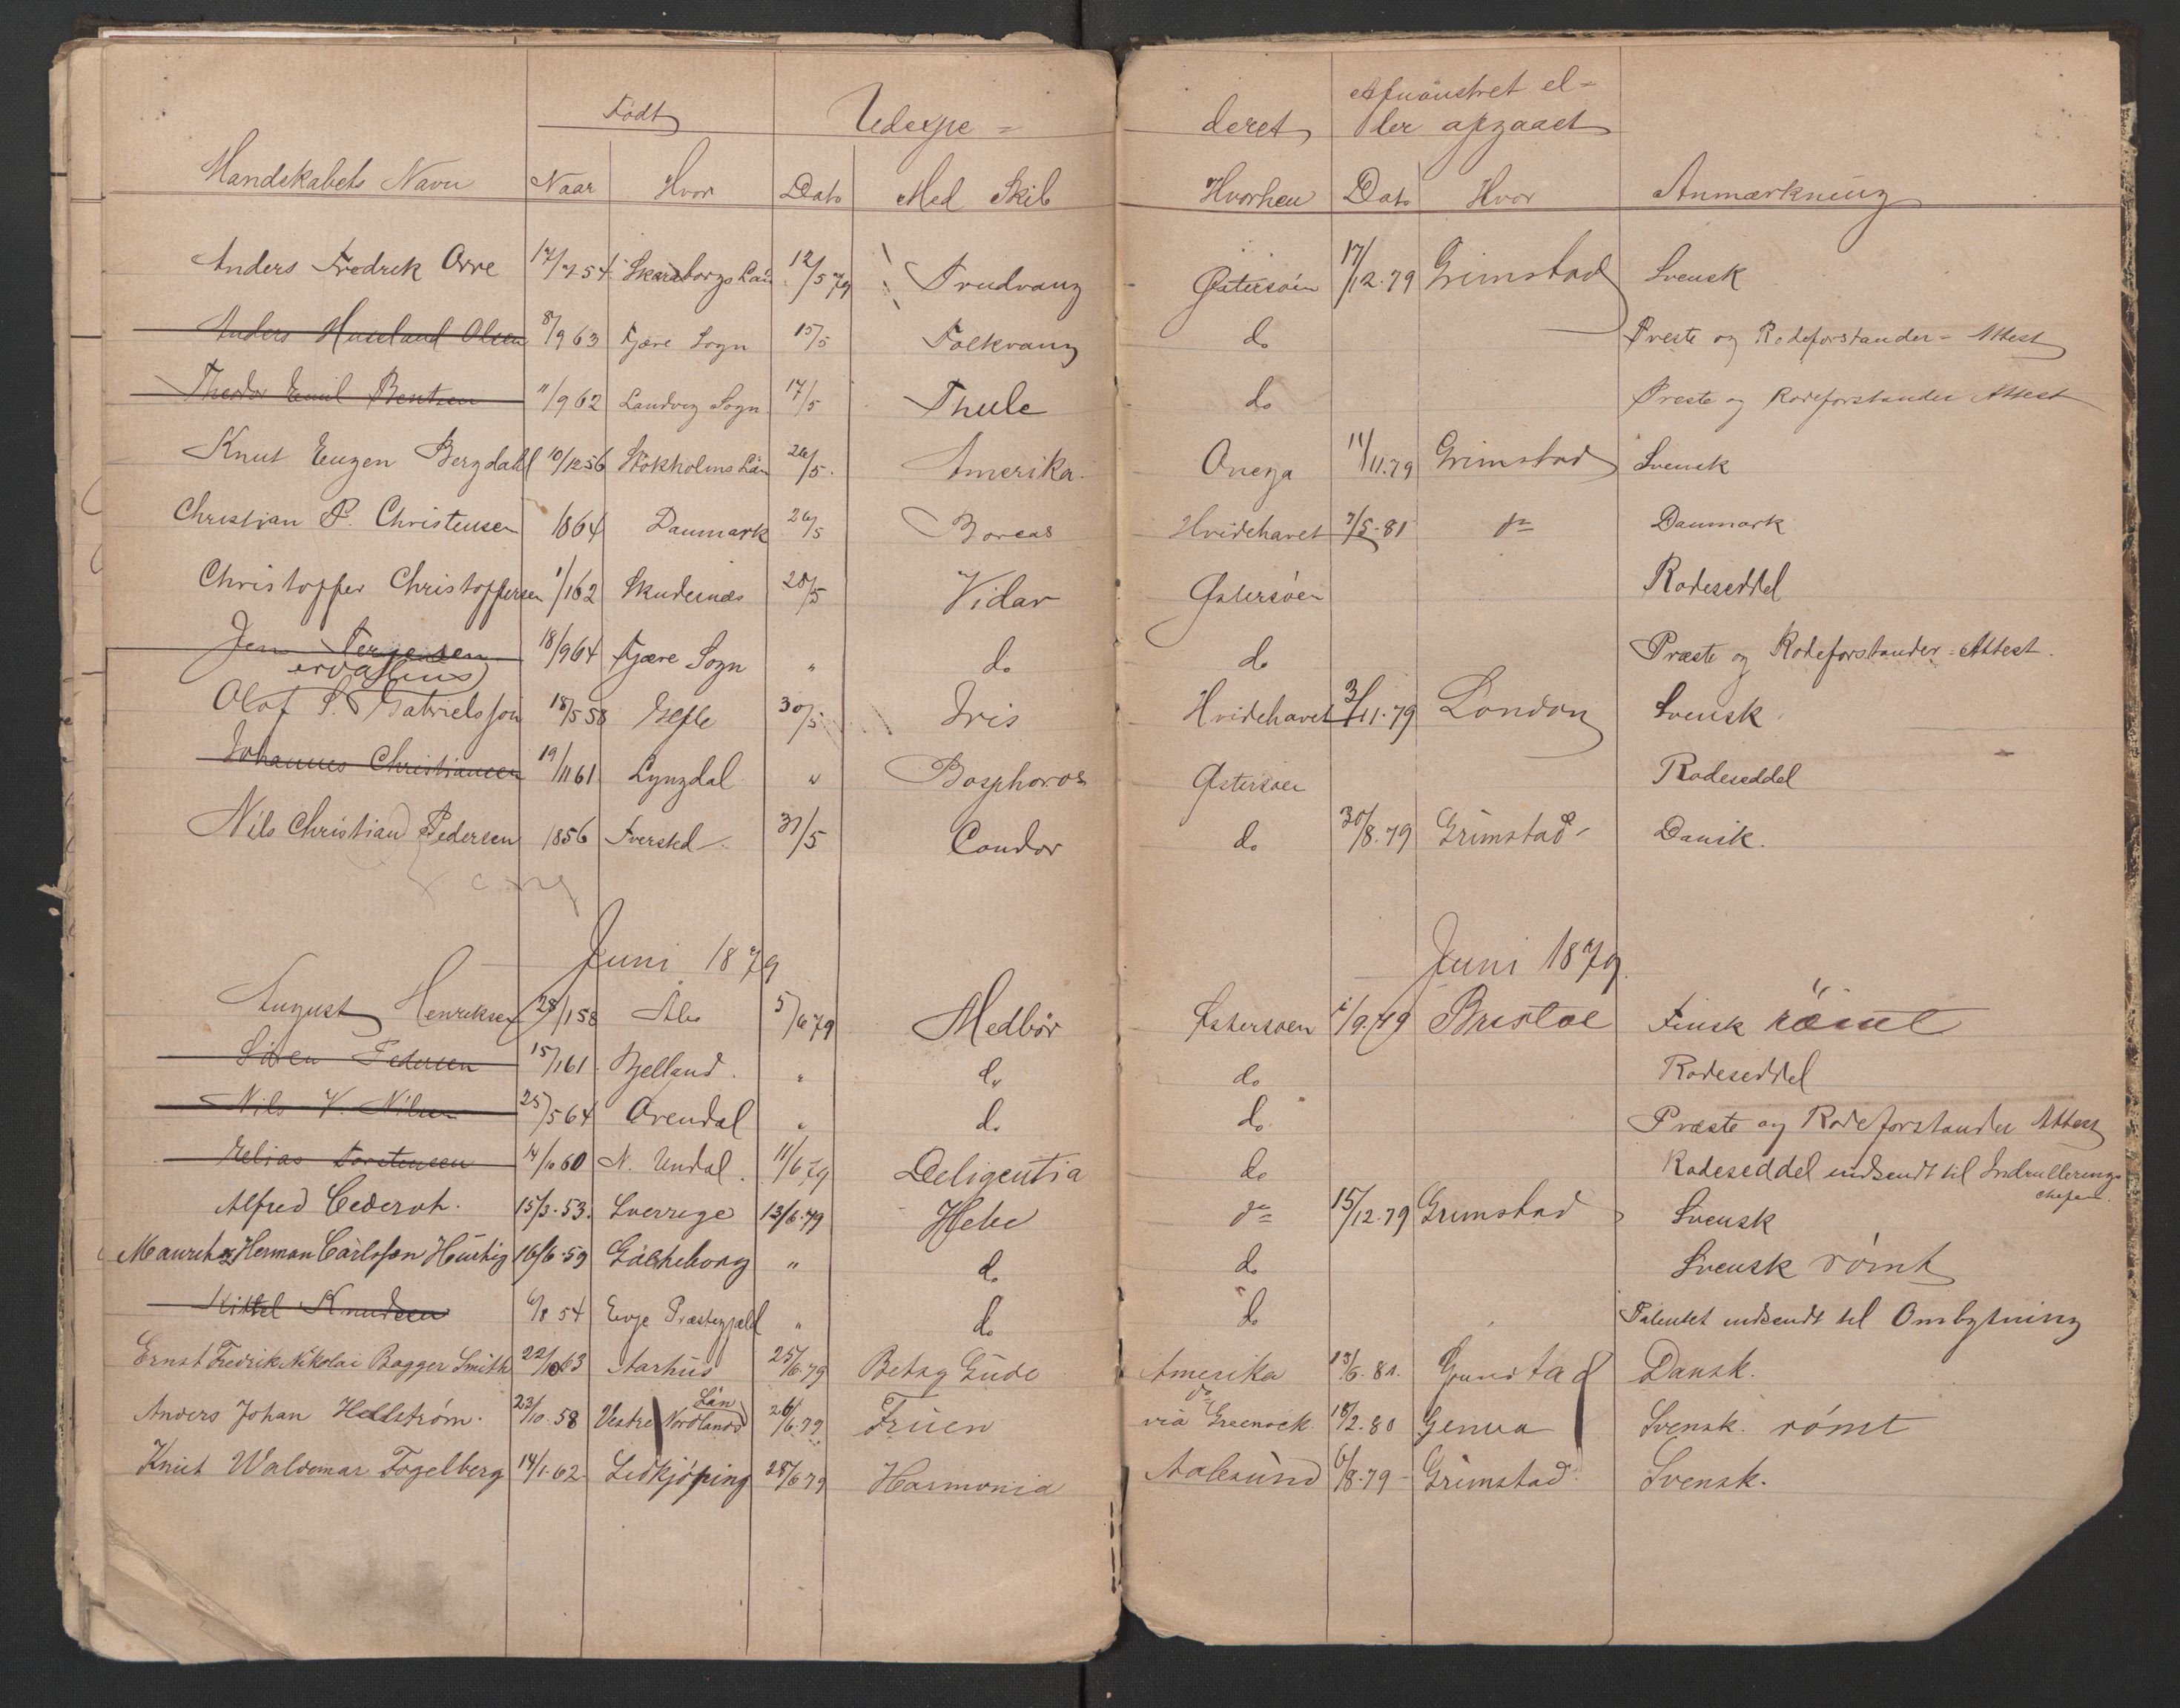 Født Udexpe= deret Afmønstret el=
ler afgaaet
Mandskabets Navn Naar Hvor Dato Med Skib Hvorhen Dato Hvor Anmærkning
Anders Fredrik Orre 17/7 54 Skaraborgs Län 12/5 79 Trudvang Østersøen 17/12.79 Grimstad Svensk
Anders Huseland Olsen 8/9 63 Fjære Sogn 15/5 Folkvang do Preste og Rodeforstander=Attest
Theodor Emil Bentsen 11/9 62 Landvig Sogn 17/5 Thule do Præste og Rodeforstander Attest
Knut Eugen Bergdahl 10/12 56 Stokholms Län 26/5. Amerika. Onega 11/11.79 Grimstad Svensk
Christian P. Christensen 1864 Danmark 26/5 Boreas Hvidehavet 7/5-81 do Danmark
Christopher Christophersen 1/1 62 Skudesnæs 28/5 Vidar Østersøen Rodeseddel
Jens Terjesen 18/9 64 Fjære Sogn " do do Præste og Rodeforstander=Attest.
Olof P. Gabrielsson 18/5 58 Gefle 30/5 Iris Hvidehavet 3/11.79 London Svensk
Johannes Christiansen 19/11 61 Lyngdal " Bosphoros Østersøen Rodeseddel
Nils Christian Pedersen 1856 Tversted 31/5 Condor do 30/8.79 Grimstad Dansk.
Juni 1879 Juni 1879.
August Henriksen 28/1 58 Åbo 5/6 79 Medbör Østersøen 1/9.79 Bristol Finsk römt
Søren Pedersen 15/1 61 Bjelland. " do do Rodeseddel
Nils V. Nilsen 25/5 64 Arendal " do do Præste og Rodeforstander Attest
Elias Torstensen 14/10 60 N. Undal. 11/6 79 Deligentia do Rodeseddel indsendt til Indrullerings
chefen.
Alfred Cederot. 15/3-53. Sverrige 13/6.79 Hebe do 15/12.79 Grimstad Svensk
Mauritz Herman Carlsson Hurtig 16/6-59 Götheborg " do do Svensk rømt
Kittel Knudsen 6/8 54 Evje Præstegjeld " do do Patentet indsendt til Ombytning
Ernst Fredrik Nikolai Bagger Smith 22/10 63 Aarhus 25/6.79 Betzy Gude Amerika 13/6.81. Grimstad Dansk.
Anders Johan Hellström. 23/10.58 Vestre Nordlands Län 26/6.79 Fruen do via Greenock. 18/2.80 Genua Svensk. rømt
Knut Waldemar Fogelberg 14/1-62 Lidkjøping 28/6 79 Harmonia Aalesund 6/8.79 - Grimstad Svensk.